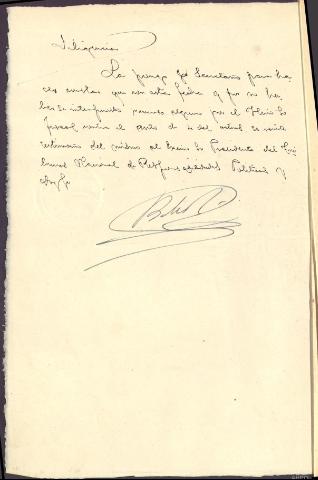 Diligencia
La pongo yo Secretario para ha-
cer constar que con esta fecha y por no ha-
berse interpuesto recurso alguno por el Ministerio
Fiscal contra el auto de del actual se remite
testimonio del mismo al Excmo Sr Presidente del Tri-
bunal Nacional de Responsabilidades Políticas y
doy fe